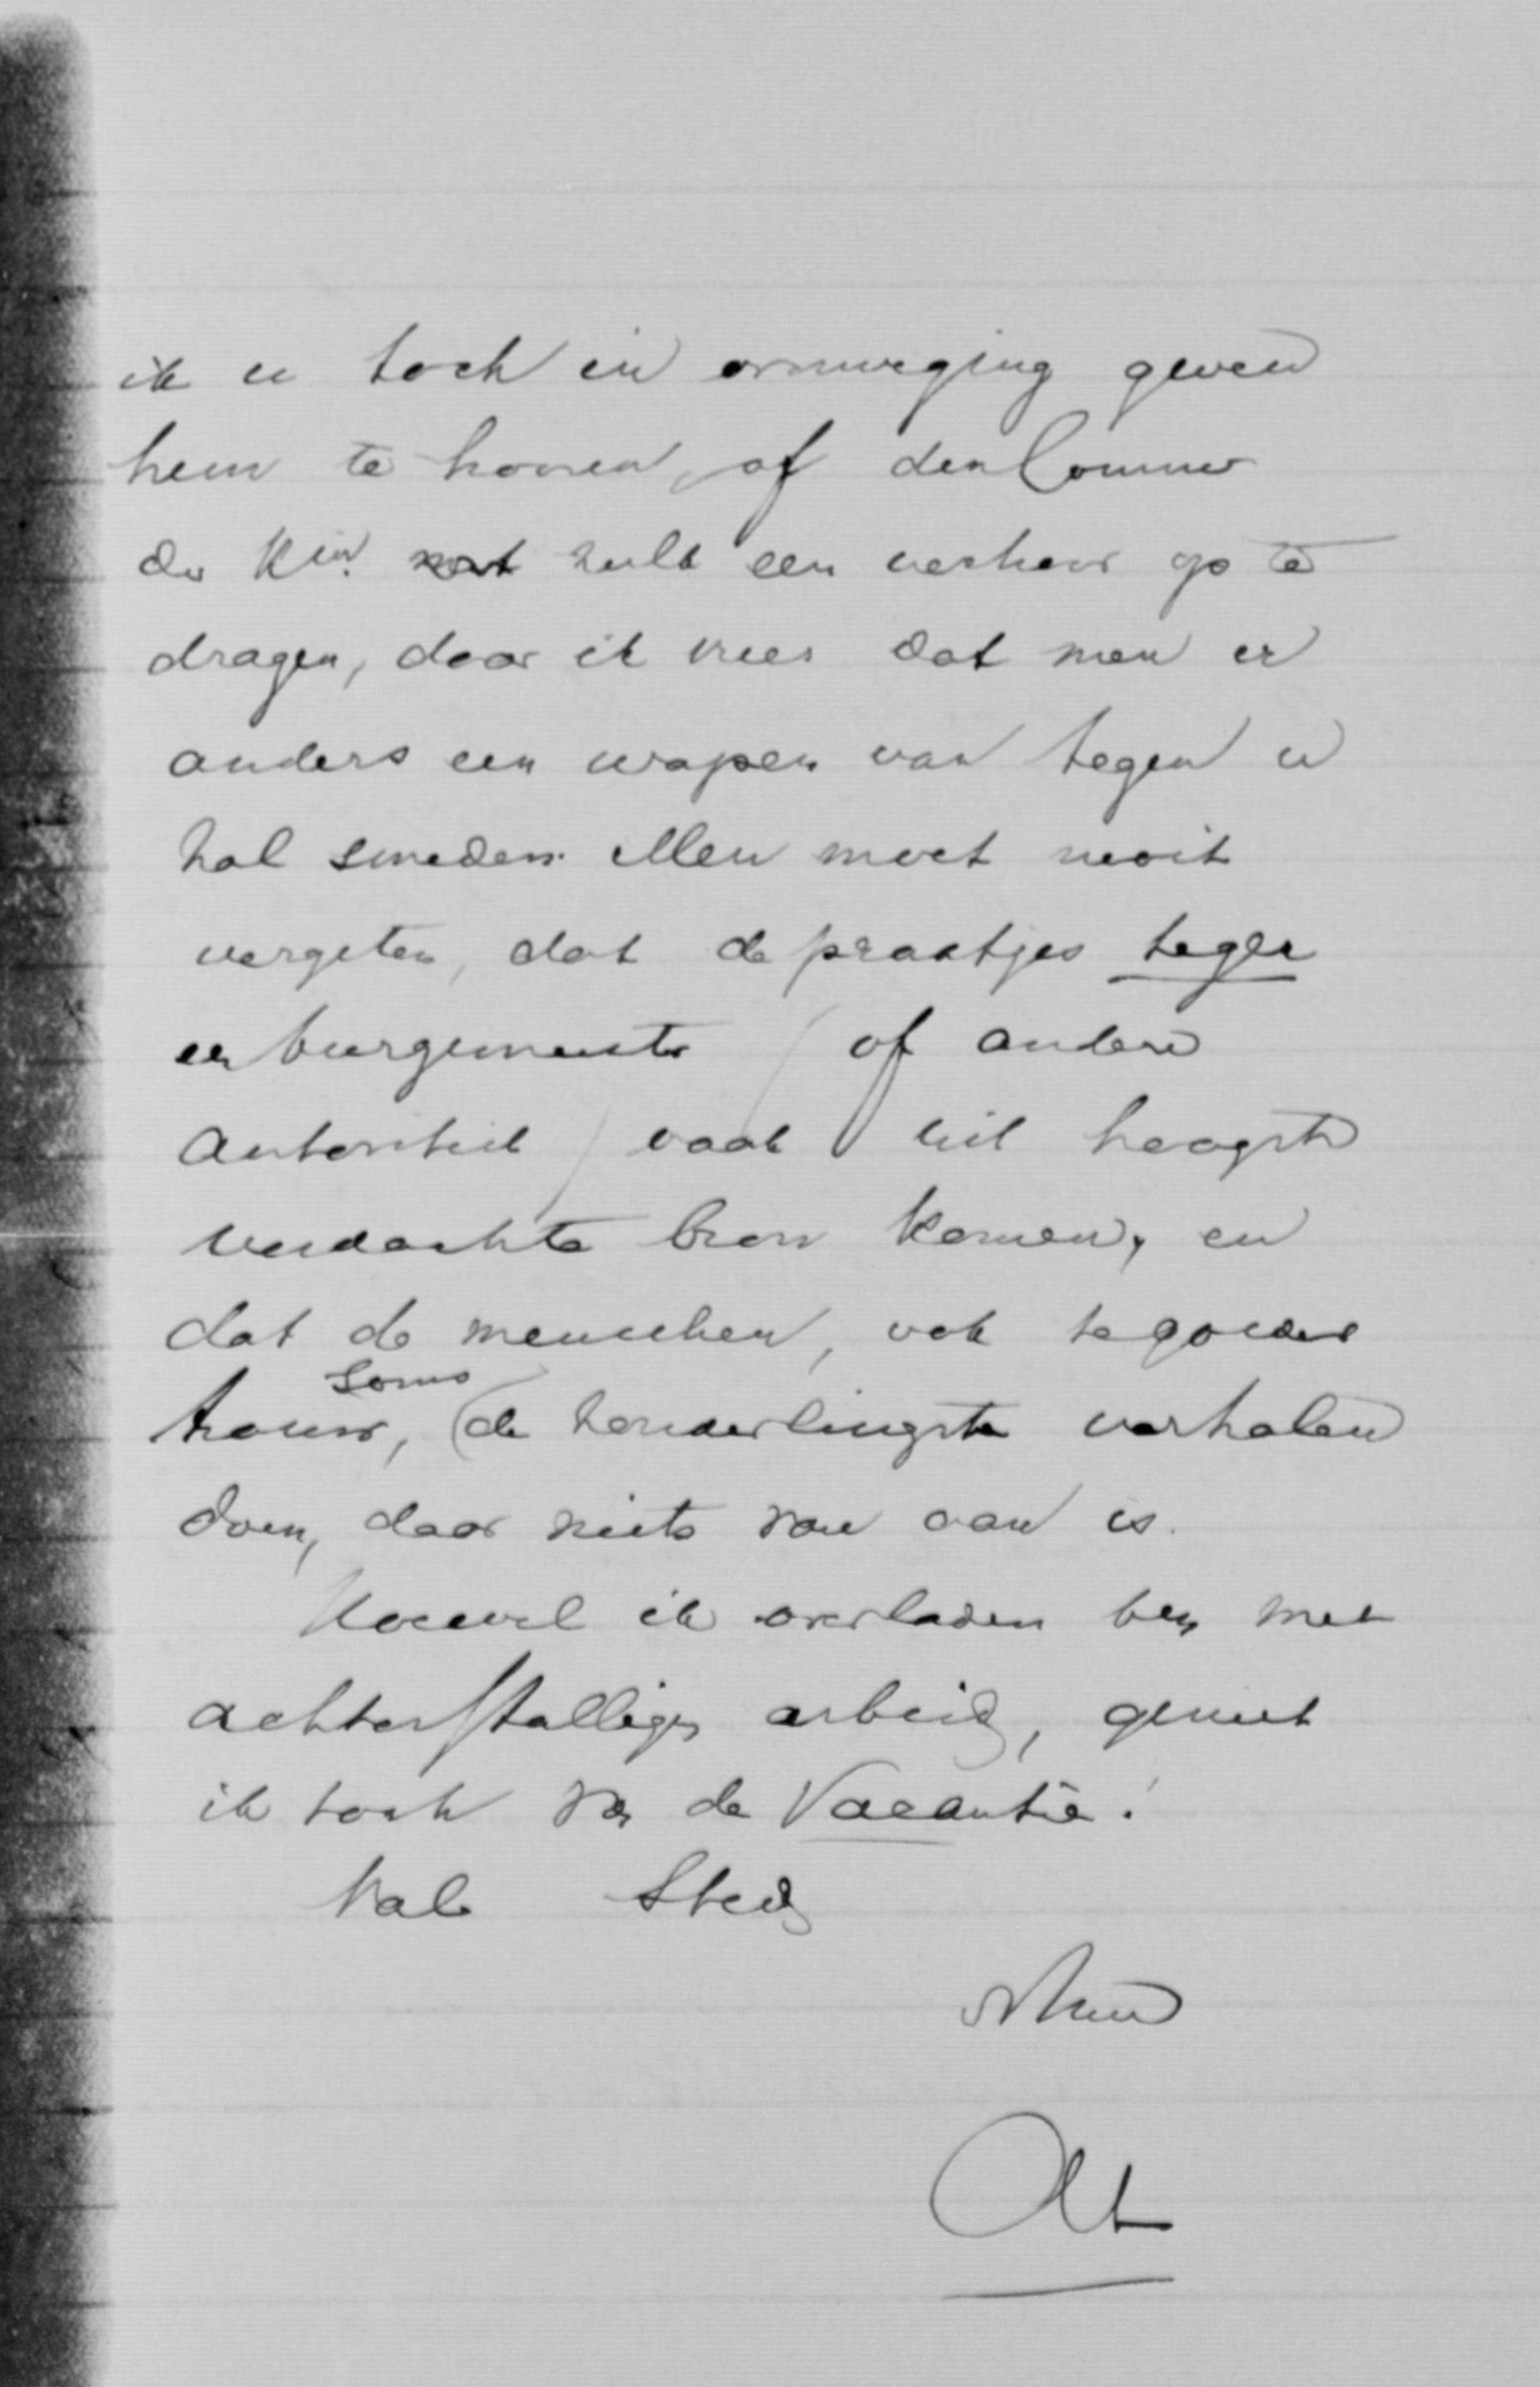 ik u toch in overweging geven
hem te hooren, of den Commr
der Kon. zulk een verhoor op te
dragen, daar ik vrees dat men er
anders een wapen van tegen u
zal smeden. Men moet nooit
vergeten, dat de praatjes tegen
een burgemeester (of andere
autoriteit) vaak uit hoogst
verdachte bron komen, en
dat de menschen, ook te goeder
trouw, soms de zonderlingste verhalen
doen, daar niets van aan is.
Hoewel ik overladen ben met
achterstalligen arbeid, geniet
ik toch van de Vacantie!
Vale Steeds